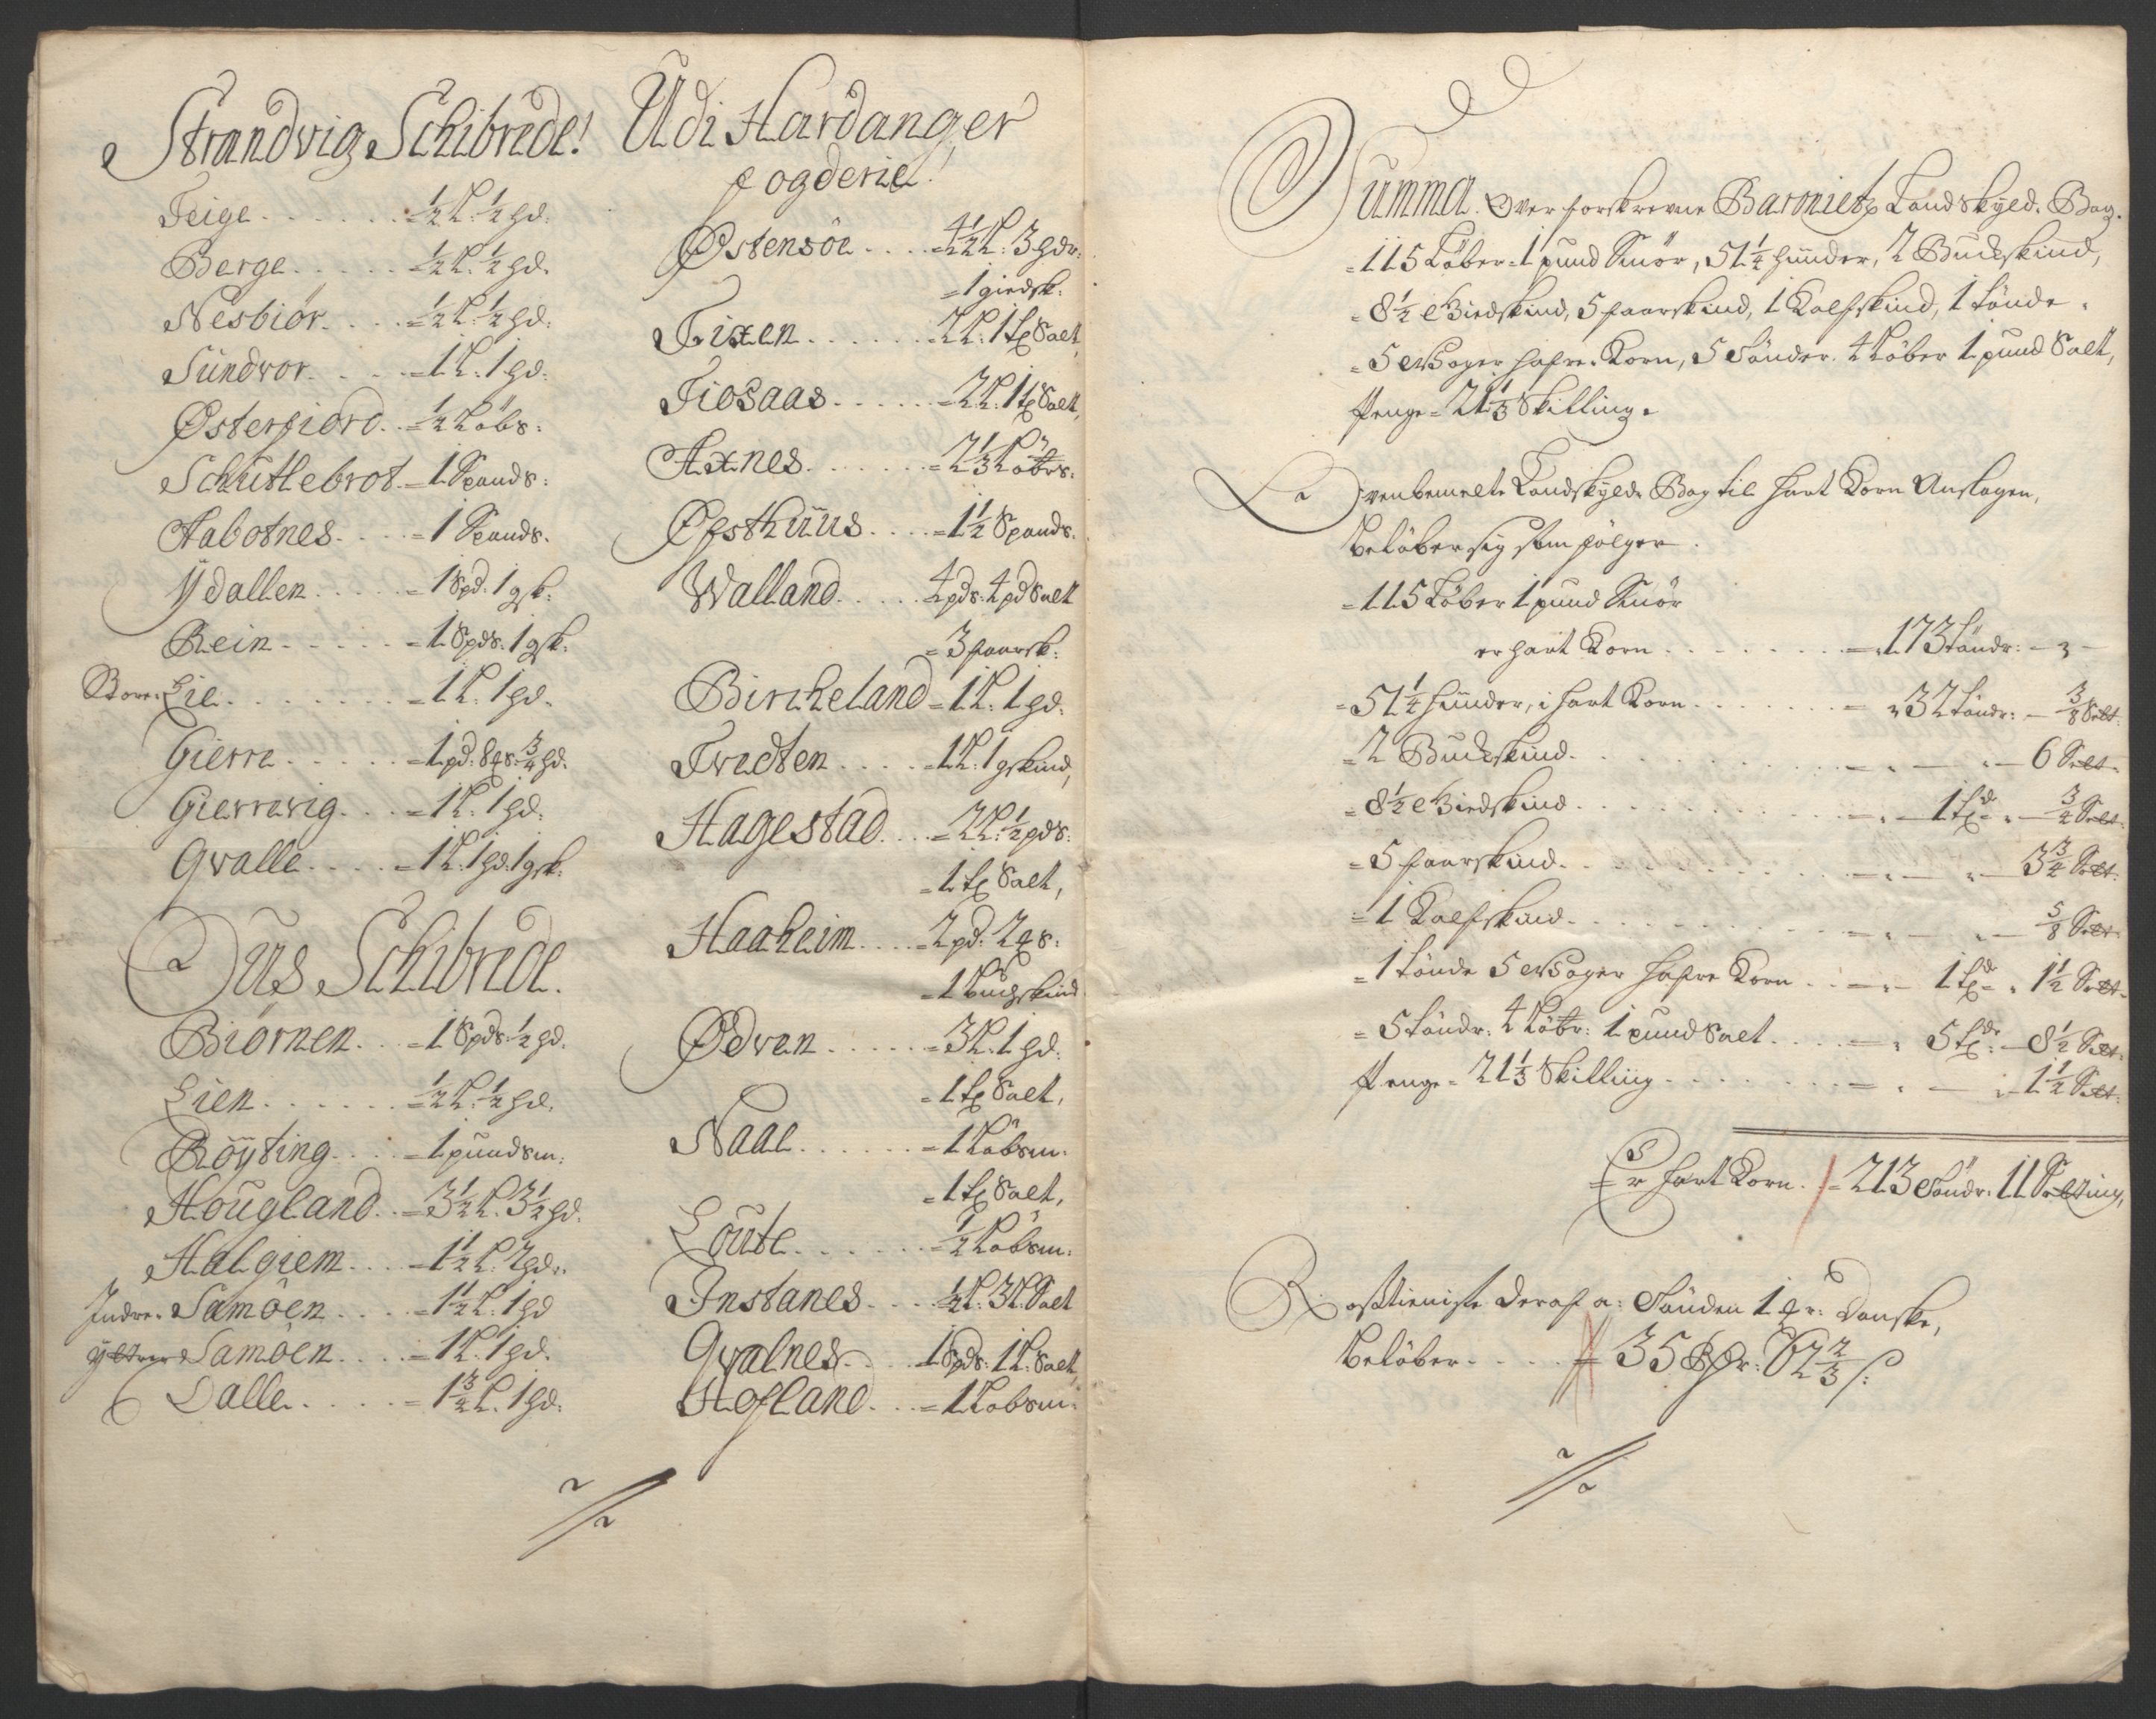 Strandvig Schibrede!
Teige . . . . . . = ½ L: ½ hd:
Berge . . . . . = ½ L: ½ hd.
Nesbiör . . . . = ½ L: ½ hd:
Sundvor . . . . = 1 L: 1 hd:
Østerfiord . . = ½ Löbs:
Schutlebrot . = 1 Spands:
Aabotnes . . . . = 1 Spands.
Ÿdallen . . . . . = 1 Spd: 1 gsk:
Rein . . . . . . = 1 Spds: 1 gsk:
Store Lie . . . . . . . . = 1 L: 1 hd.
Gierre . . . . . = 1 pd: 8 ɱs: ¾ hd.
Gierrevig . . . = 1 L: 1 hd:
Qvalle . . . . . = 1 L: 1 hd: 1 gsk:
Ous Schibrede.
Biörnen . . . = 1 Spds: ½ hd.
Lien . . . . . . = ½ L: ½ hd.
Röÿting . . . . = 1 pund sm:
Hougland . . = 3½ L. 3½ hd.
Halgiem . . . . = 1½ L. 2 hd:
Indre Samöen . . . . = 1½ L: 1 hd
Ÿttre Samöen . . . . = 1 L: 1 hd.
Dalle . . . . . = 1¾ L. 1 hd:
Udi Hardanger
fogderie!
Østensöe . . . = 4½ L: 3 hdr:
= 1 giedsk:
Tixen . . . . . . = 2 L: 1 tɱ Salt,
Tiosaas . . . . . = 2 L: 1 tɱ Salt,
Axnes . . . . . . = 2⅓ Löbrs:
Øfsthuus . . . . = 1½ Spands.
Walland . . . . . 4 pds: 4 pd Salt
= 3 faarsk:
Bircheland = 1 L: 1 hd:
Tredten . . . . = 1 L: 1 gskind,
Hagestad . . . = 2 L: ½ pds:
= 1 tɱ Salt,
Haaheim . . . . = 2 pd: 2 ɱs:
= 1 buchskind
Ødven . . . . . . = 3 L: 1 hd:
= 1 tɱ Salt,
Naae . . . . . . = 1 Löbsm:
= 1 tɱ Salt,
Loute . . . . . . = ½ Löbsm:
Instanes . . . ½ L: 3 L: Salt
Qvalnes . . . 1 Spds: 1 L: Salt,
Hofland . . . = 1 Löbsm:
Summa. Over forskrevne Barniets Landskyld. Bog.
= 115 Löber = 1 pund Smör, 51¼ huuder, 2 Buckskind,
= 8½ Giedskind, 5 faarskind, 1 Kalfskind, 1 tönde
= 5 Woger hafre Korn, 5 Tönder. 4 Löber 1 pund Salt,
Penge = 21⅓ Skilling.
Ovenbemelte Landskyld. Bog til hart Korn Anslagen,
belöber sig som fölger.
= 115 Löber 1 pund Smör
er hart Korn . . . . . . . = 173 töndr: – 3 –
= 51¼ huuder, i hart Korn . . . . . . = 32 töndr: – ⅜ Sett:
= 2 Buckskind . . . . . . . . . . – 6 Sett:
= 8½ Giedskind . . . . . . . . . = 1 td: – ¾ Sett:
= 5 faarskind . . . . . . . . . . – 3¾ Sett:
= 1 Kalfskind . . . . . . . . . . – ⅝ Sett:
= 1 tönde 5 Woger hafre Korn . . = 1 td: 1½ Sett:
= 5 töndr: 4 Löbr: 1 pund Salt . . . . = 5 td: – 8½ Sett:
Penge = 21⅓ Skilling . . . . . . . . = 1½ Sett:
Er hart Korn . = 213 töndr: 11 Setting,
Rosstieniste deraf a: Tönden 1 ɱr: Danske,
belöber . . . . . = 35 Rdr: 62⅔ s: